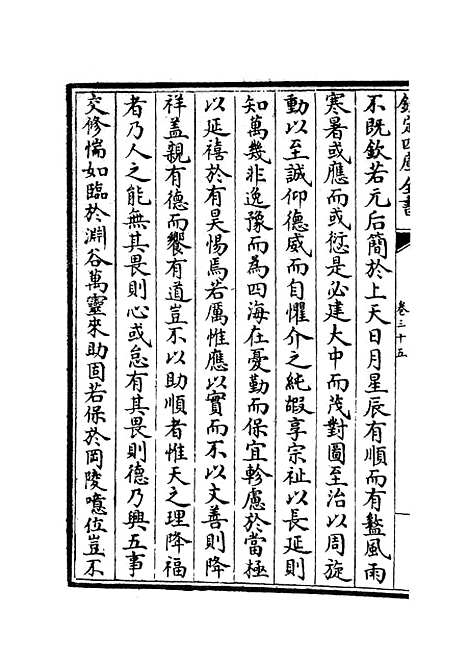 欽定四庫全書
卷三十五
不既欽若元后簡於上天日月星辰有順而有盭風雨
寒暑或應而或愆是必建大中而茂對圖至治以周旋
動以至誠仰德威而自懼介之純嘏享宗祉以長延則
知萬幾非逸豫而為四海在憂勤而保宜軫慮於當極
以延禧於有昊惕焉若厲惟應以實而不以文善則降
祥盖親有德而饗有道豈不以助順者惟天之理降福
者乃人之能無其畏則心或怠有其畏則德乃興五事
交修惴如臨於淵谷萬靈來助固若保於岡陵噫位豈不